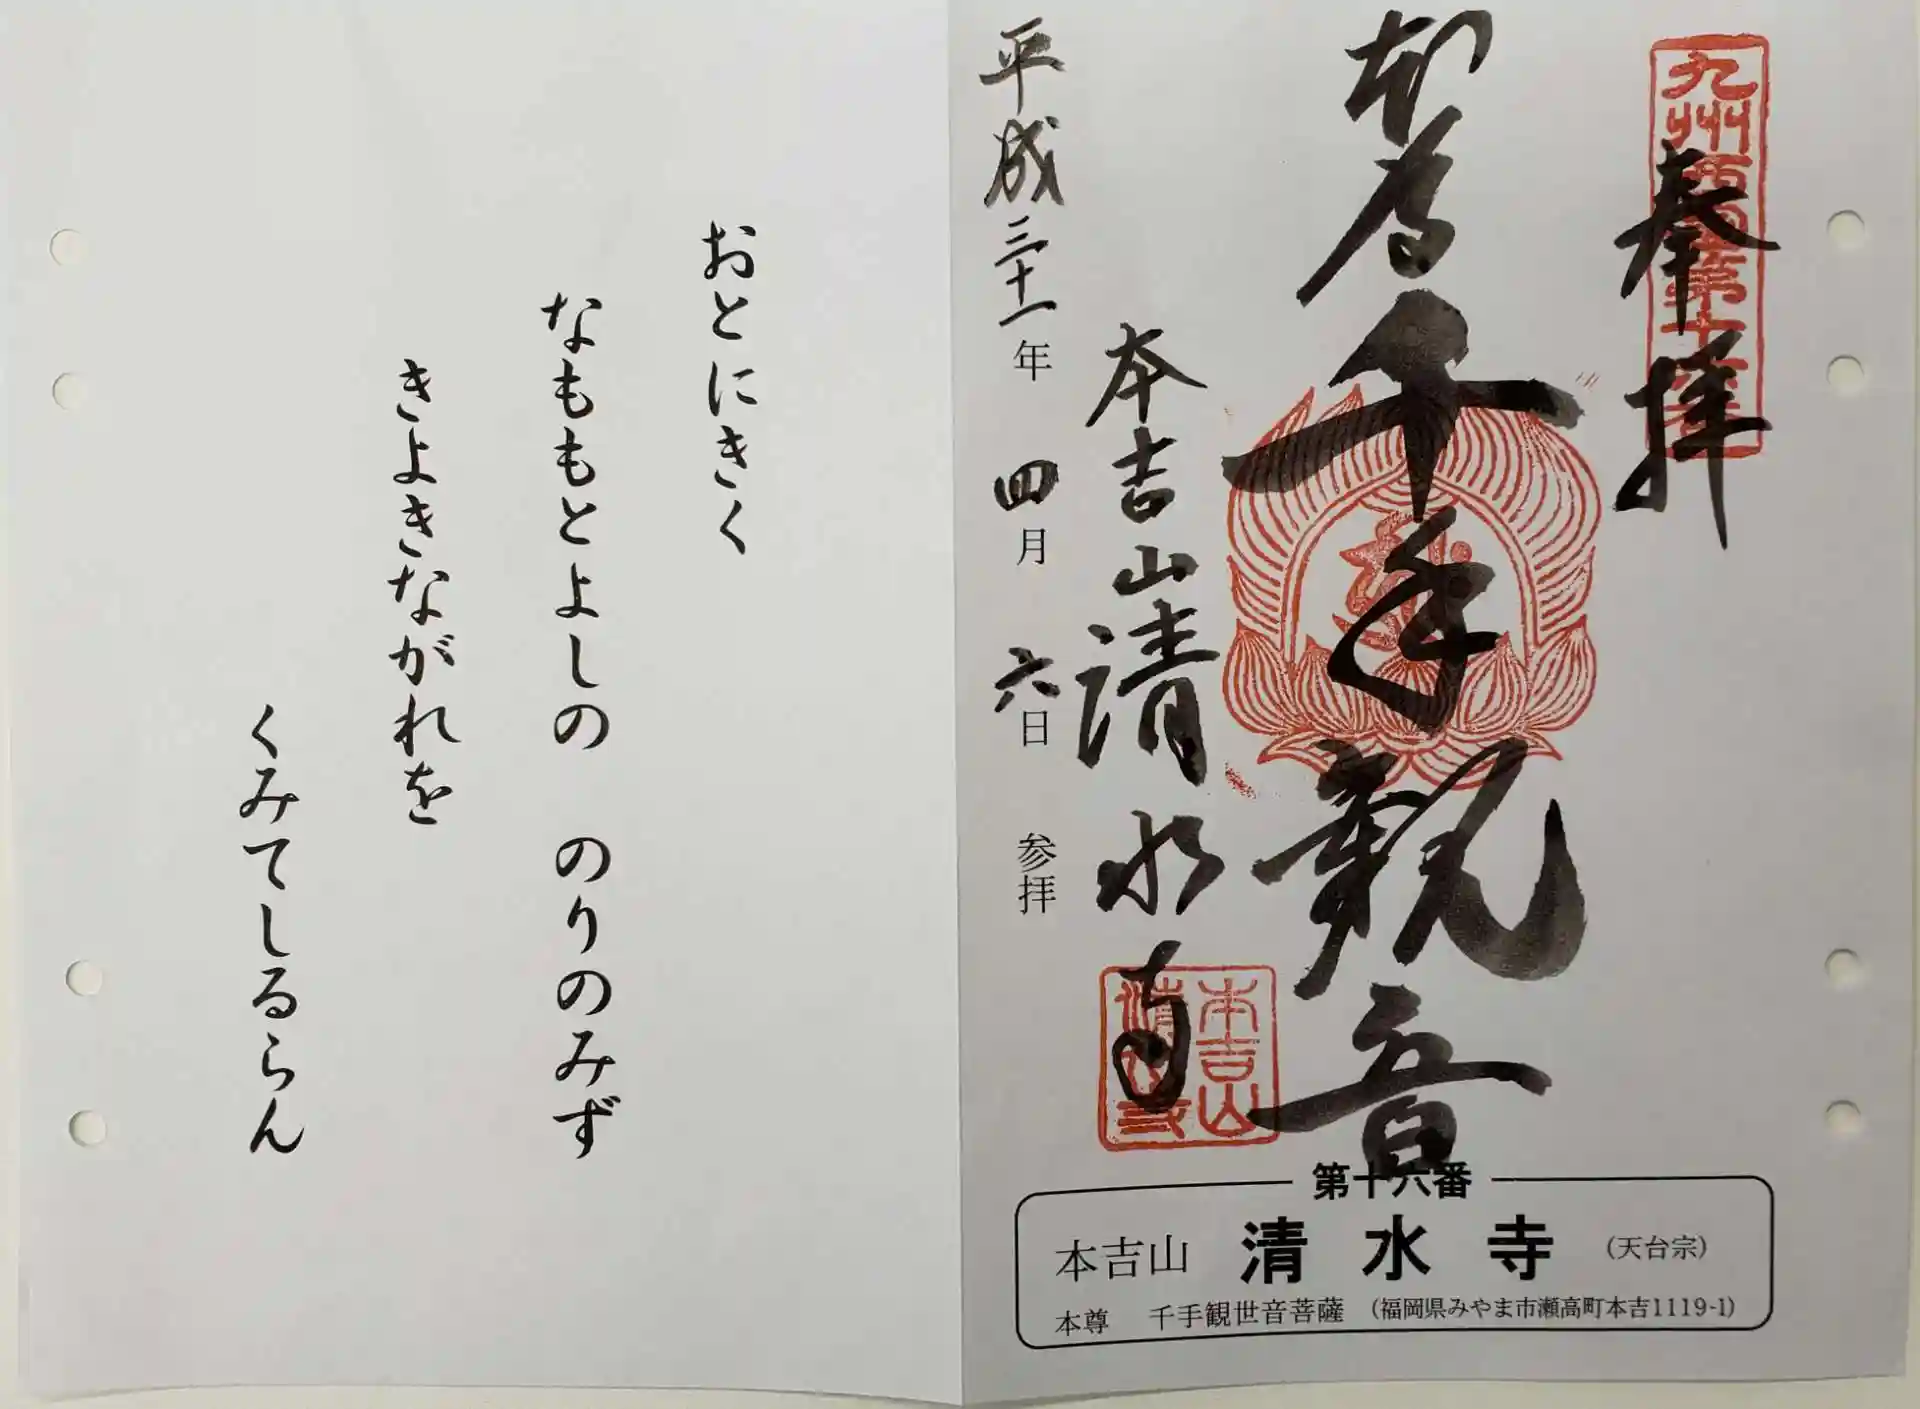 奉拝
本尊
千手観音
本吉山清水寺
平成三十一年 四月 六日 参拝
本吉山
第十六番
本吉山 清水寺 (天台宗)
本尊 千手観世音菩薩 (福岡県みやま市瀬高町本吉1119-1)
おとにきく
なももとよしの のりのみず
きよきながれを
くみてしるらん